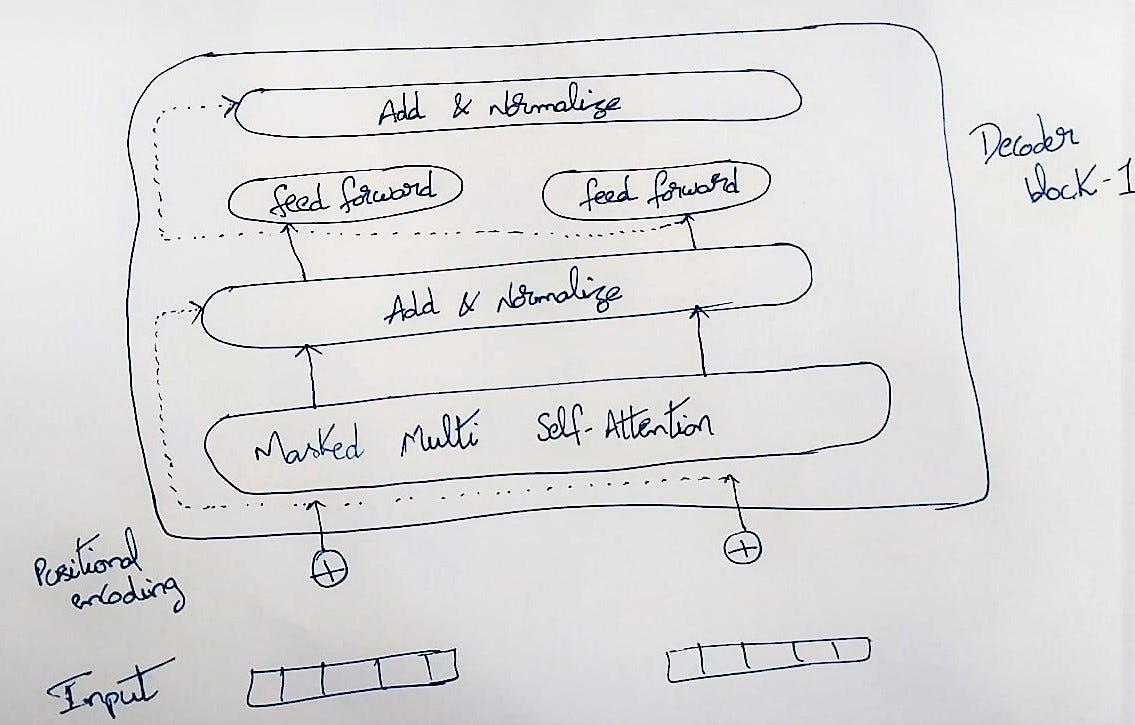 Add & Normalize
feed forward
feed forward
Decoder
block-1
Add & Normalize
Masked Multi Self-Attention
Positional
encoding
Input